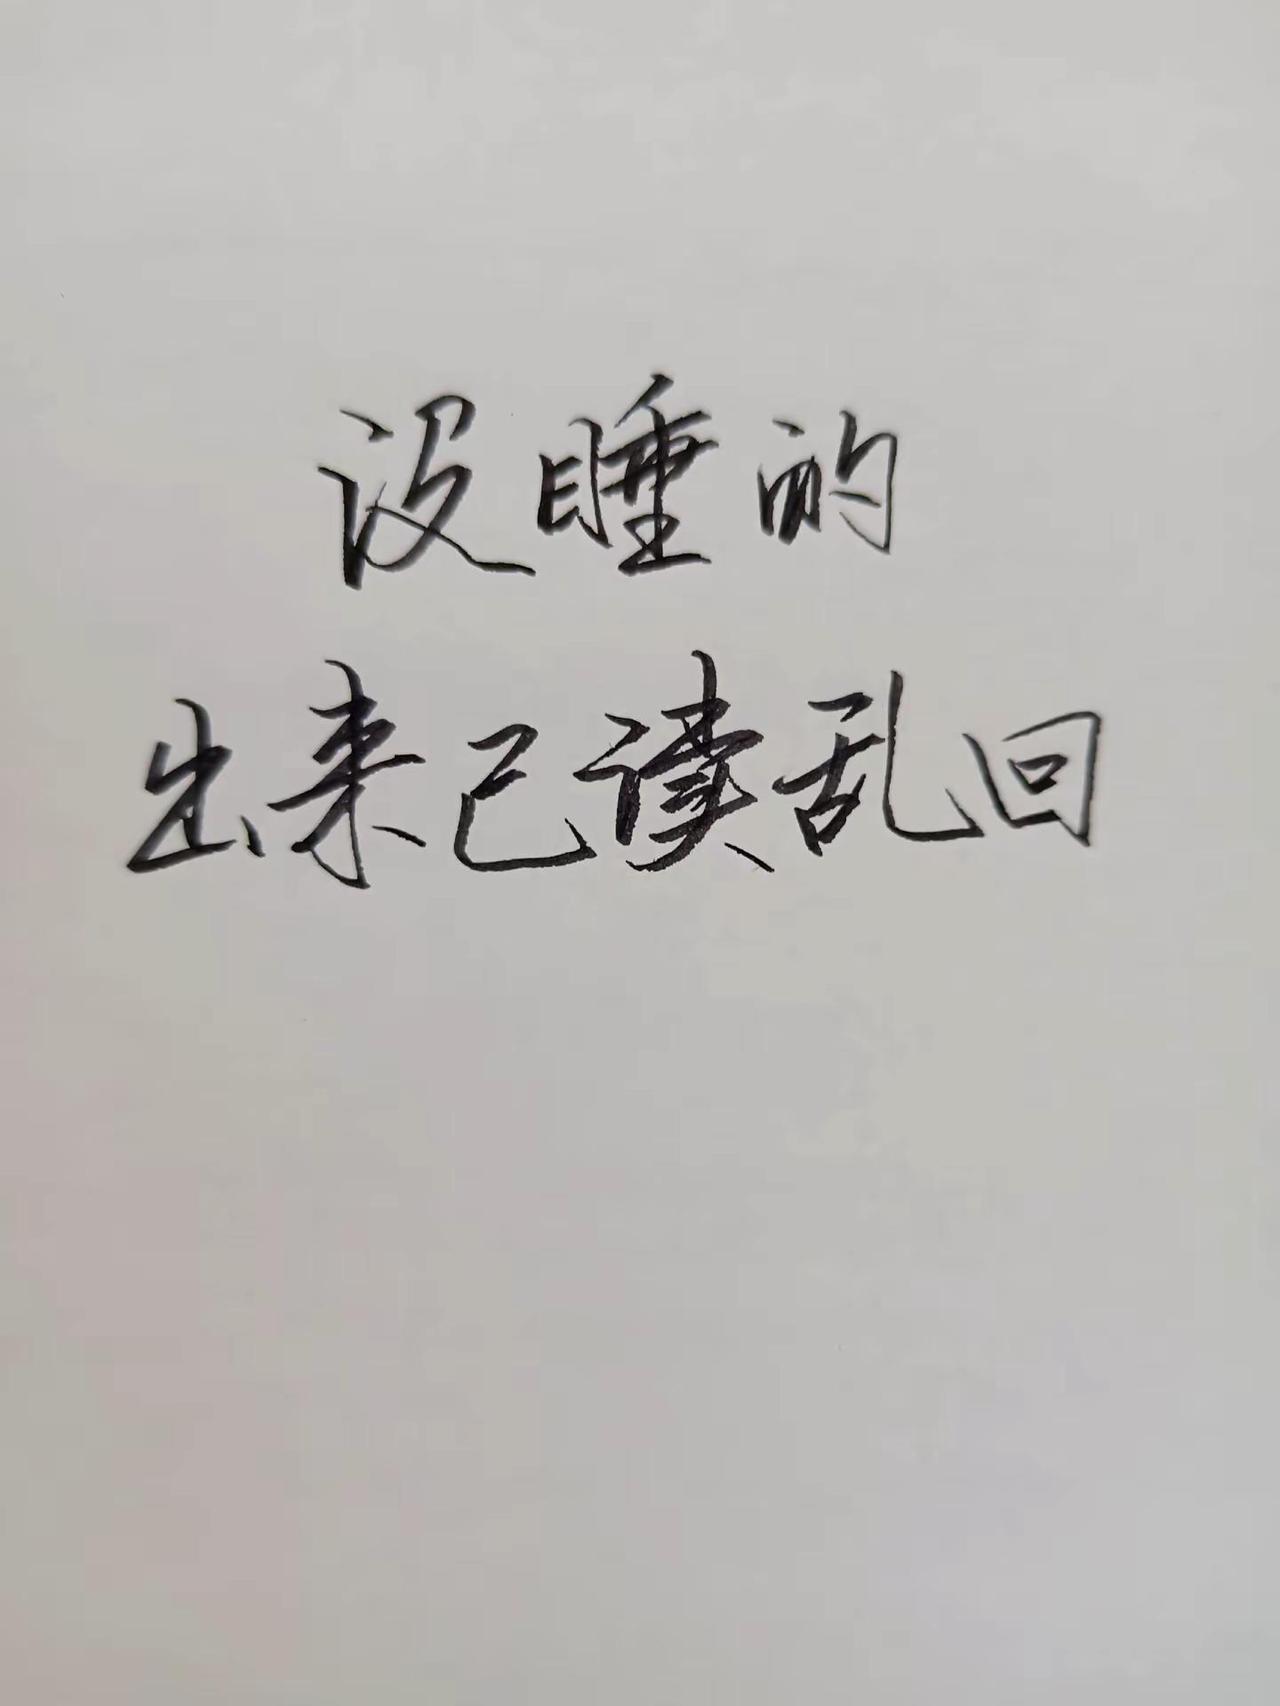 没睡的
出来已读乱回